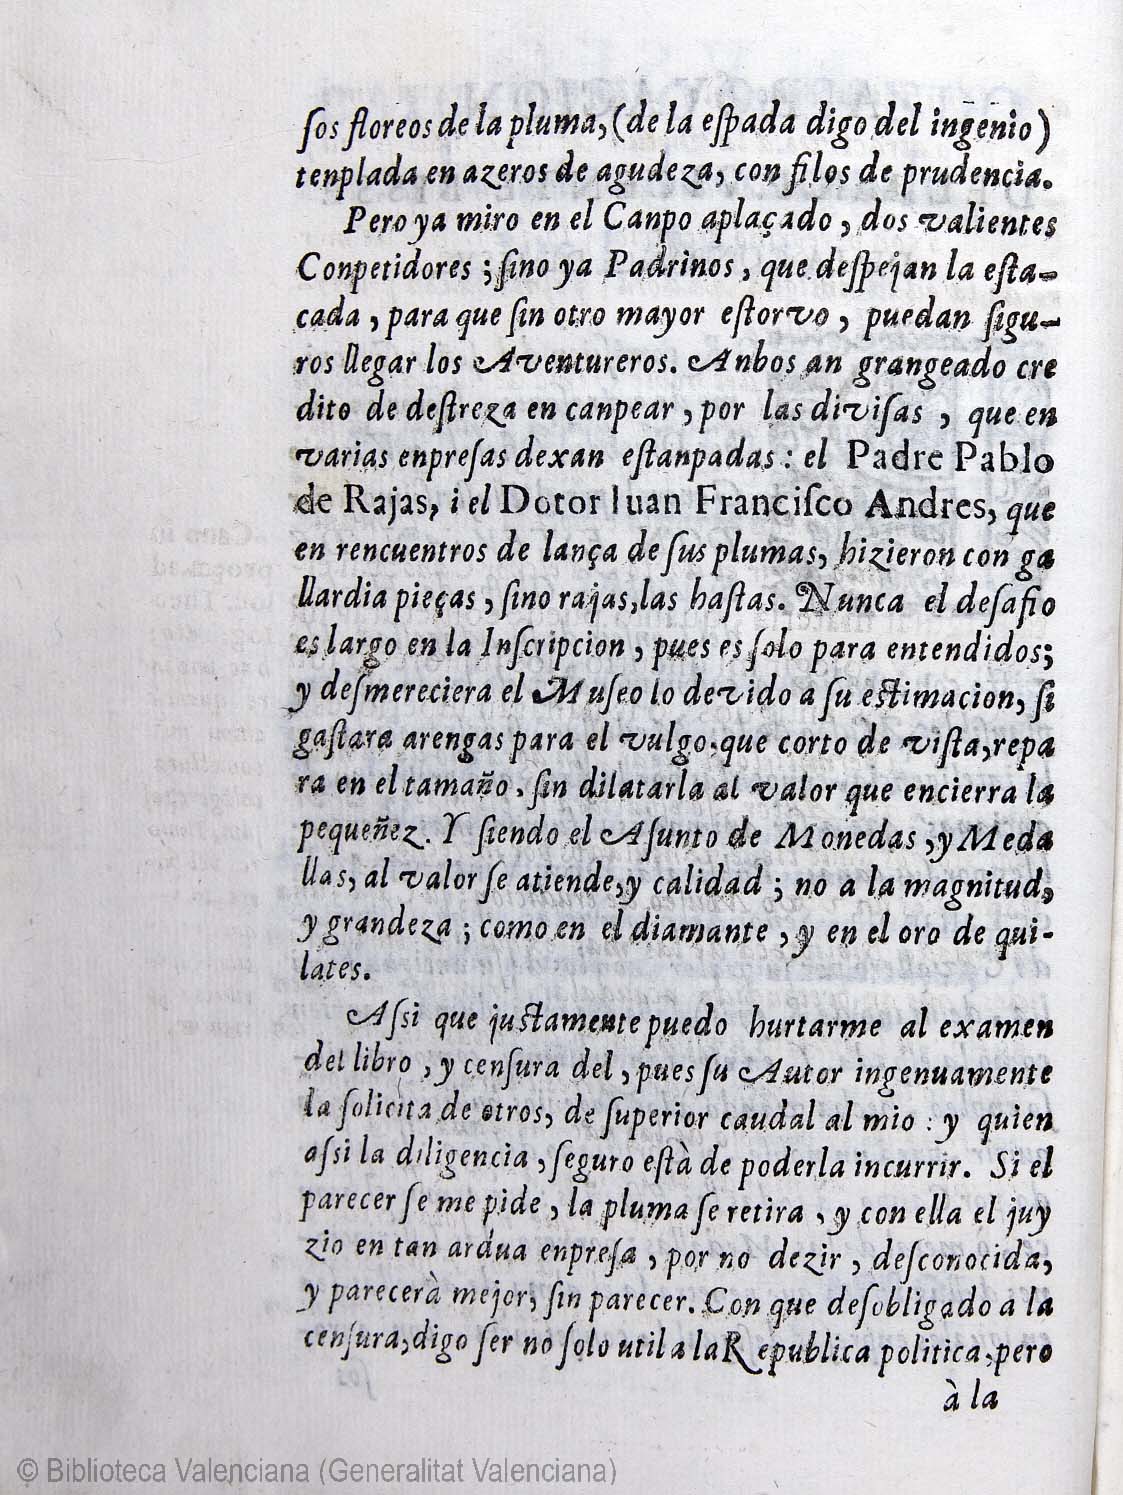 ſos floreos de la pluma, (de la eſpada digo del ingenio)
tenplada en azeros de agudeza, con filos de prudencia.
Pero ya miro en el Canpo aplaçado, dos valientes
Conpetidores; ſino ya Padrinos, que deſpejan la eſta-
cada, para que ſin otro mayor eſtorvo, puedan ſigu-
ros llegar los Aventureros. Anbos an grangeado cre
dito de deſtreza en canpear, por las diviſas, que en
varias enpreſas dexan eſtanpadas: el Padre Pablo
de Rajas, i el Dotor Iuan Franciſco Andres, que
en rencuentros de lança de ſus plumas, hizieron con ga
llardia pieças, ſino rajas, las haſtas. Nunca el deſafio
es largo en la Inſcripcion, pues es ſolo para entendidos;
y deſmereciera el Muſeo lo devido a ſu eſtimacion, ſi
gaſtara arengas para el vulgo, que corto de viſta, repa
ra en el tamaño, ſin dilatarla al valor que encierra la
pequeñez. Y ſiendo el Aſunto de Monedas, y Meda
llas, al valor ſe atiende, y calidad; no a la magnitud,
y grandeza; como en el diamante, y en el oro de qui-
lates.
Aſsi que juſtamente puedo hurtarme al examen
del libro, y cenſura del, pues ſu Autor ingenuamente
la ſolicita de otros, de ſuperior caudal al mio: y quien
aſsi la diligencia, ſeguro eſtà de poderla incurrir. Si el
parecer ſe me pide, la pluma ſe retira, y con ella el juy
zio en tan ardua enpreſa, por no dezir, deſconocida,
y parecerà mejor, ſin parecer. Con que deſobligado a la
cenſura, digo ſer no ſolo util a la Republica politica, pero
à la
© Biblioteca Valenciana (Generalitat Valenciana)